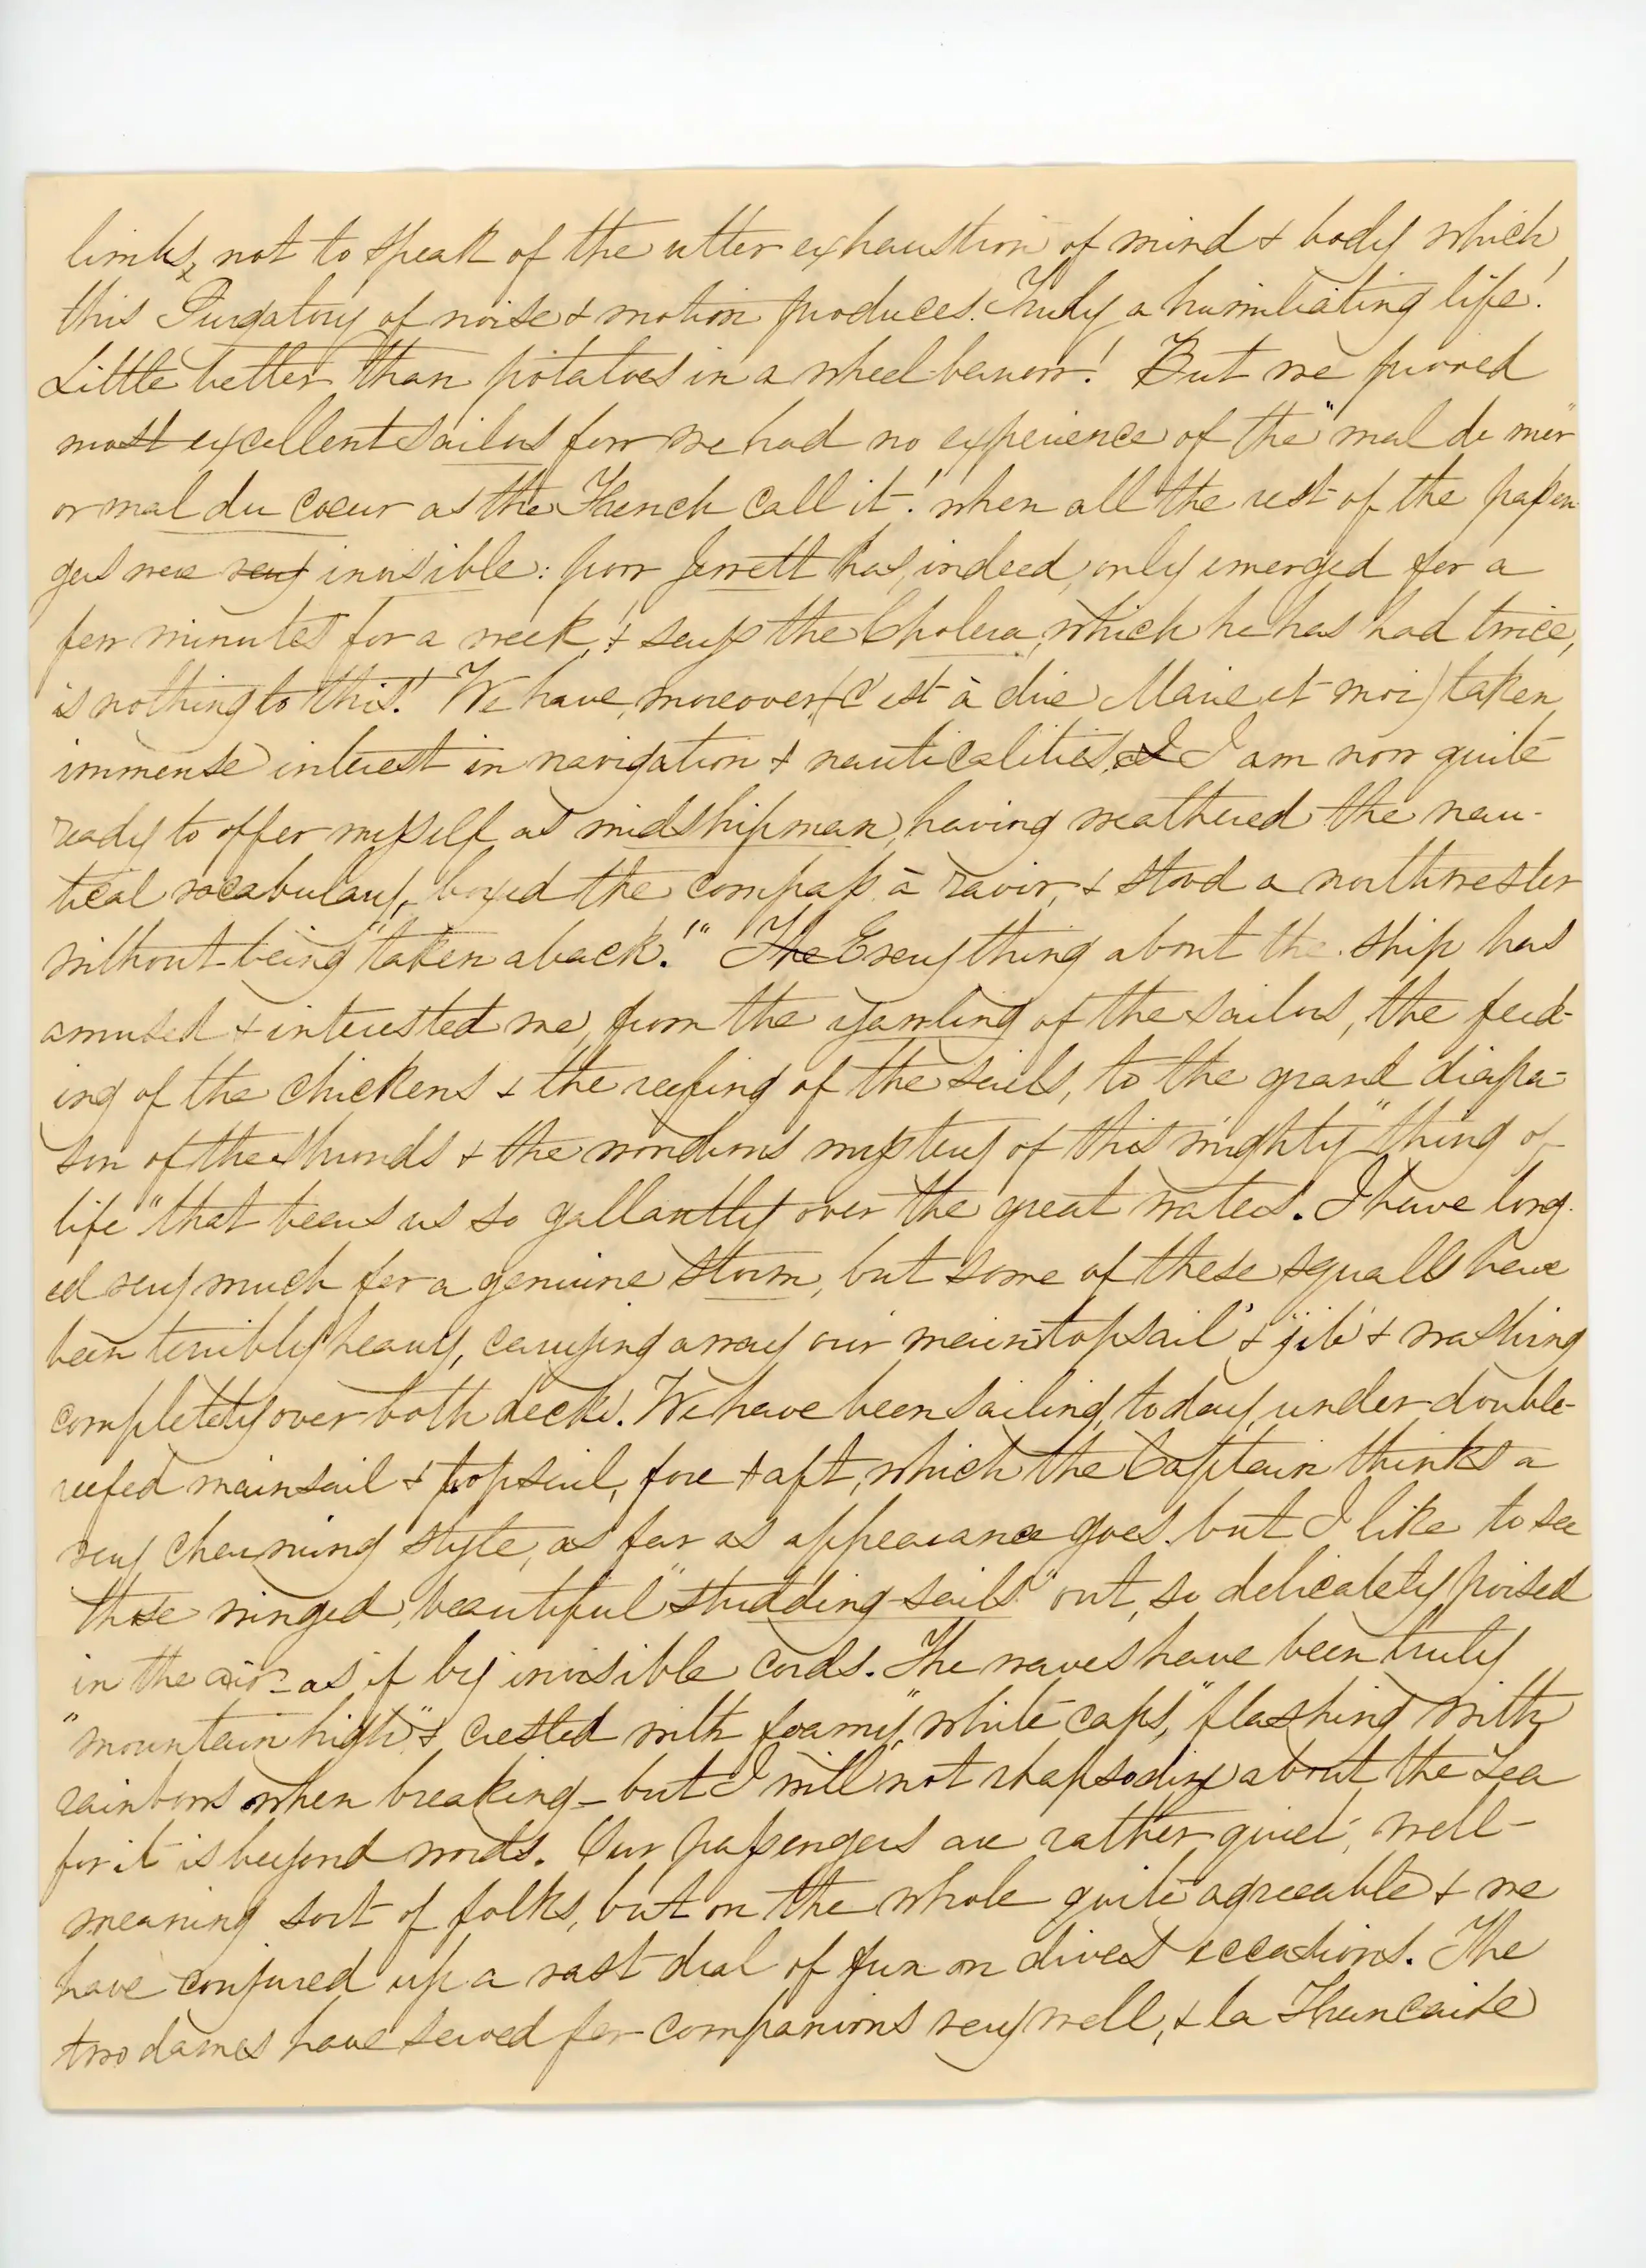 limbs, not to speak of the utter exhaustion of mind & body which
this Purgatory of noise & motion produces. Truly a humiliating life!
Little better than potatoes in a wheel-barrow! But we proved
most excellent sailors for we had no experience of the "mal de mer"
or mal du coeur as the French call it! when all the rest of the passen-
gers were very invisible: poor Jerrett has, indeed, only emerged for a
few minutes for a week, & says the Cholera, which he has had twice,
is nothing to this! We have, moreover, (c'est à dire Marie et moi) taken
immense interest in navigation & nauticalities, & I I am now quite
ready to offer myself as midshipman, having weathered the nau-
tical vocabulary, boxed the compass à ravir, & stood a northwester
without being "taken aback!" The Everything about the ship has
amused & interested me, from the yawling of the sailors, the feed-
ing of the chickens & the reefing of the sails, to the grand diapa-
son of the shrouds & the wondrous mystery of this mighty "thing of
life" that bears us so gallantly over the great waters. I have long-
ed very much for a genuine storm, but some of these squalls have
been terribly heavy, carrying away our main-topsail & jib & washing
completely over both decks. We have been sailing, today, under double-
reefed mainsail & topsail, fore & aft, which the Captain thinks a
very charming style, as far as appearance goes. but I like to see
those winged, beautiful "studding-sails" out, so delicately poised
in the air - as if by invisible cords. The waves have been truly
"mountain high" & crested with foamy, "white caps," flashing with
rainbows when breaking - but I will not rhapsodize about the sea
for it is beyond words. Our passengers are rather quiet, well-
meaning sort of folks, but on the whole quite agreeable & we
have conjured up a vast deal of fun on divers occasions. The
two dames have served for companions very well, & la Francaise